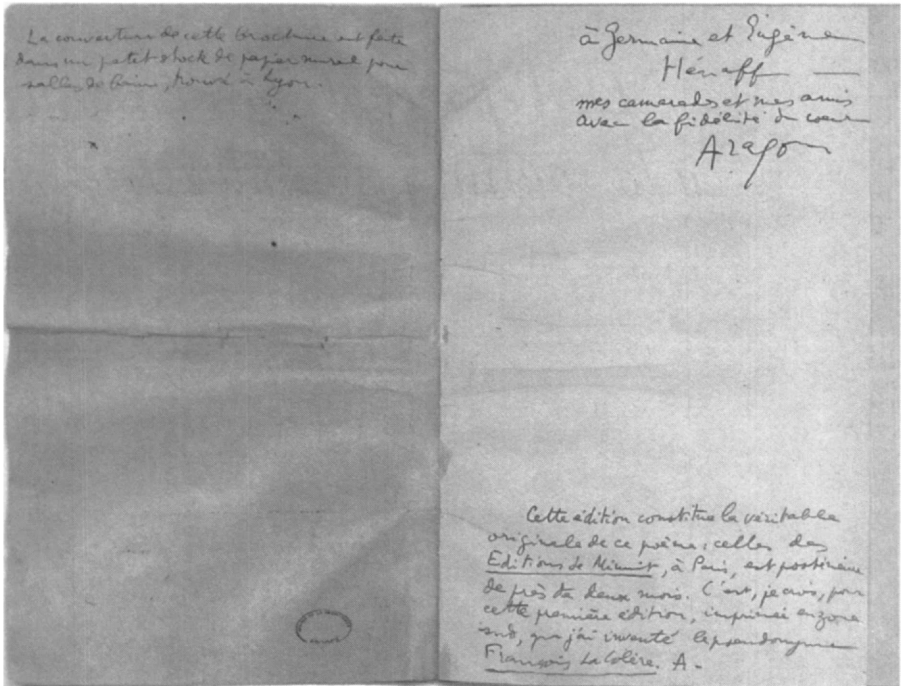 La couverture de cette brochure est faite
dans un petit stock de papier mural pour
salles de bains, trouvé à Lyon.
à Germaine et Eugène
Hénaff —
mes camarades et mes amis
avec la fidélité du coeur
Aragon
Cette édition constitue la véritable
originale de ce poème : celle des
Editions de Minuit, à Paris, est postérieure
de près de deux mois. C'est, je crois, pour
cette première édition, imprimée en zone
sud, que j'ai inventé le pseudonyme
François La Colère. A.